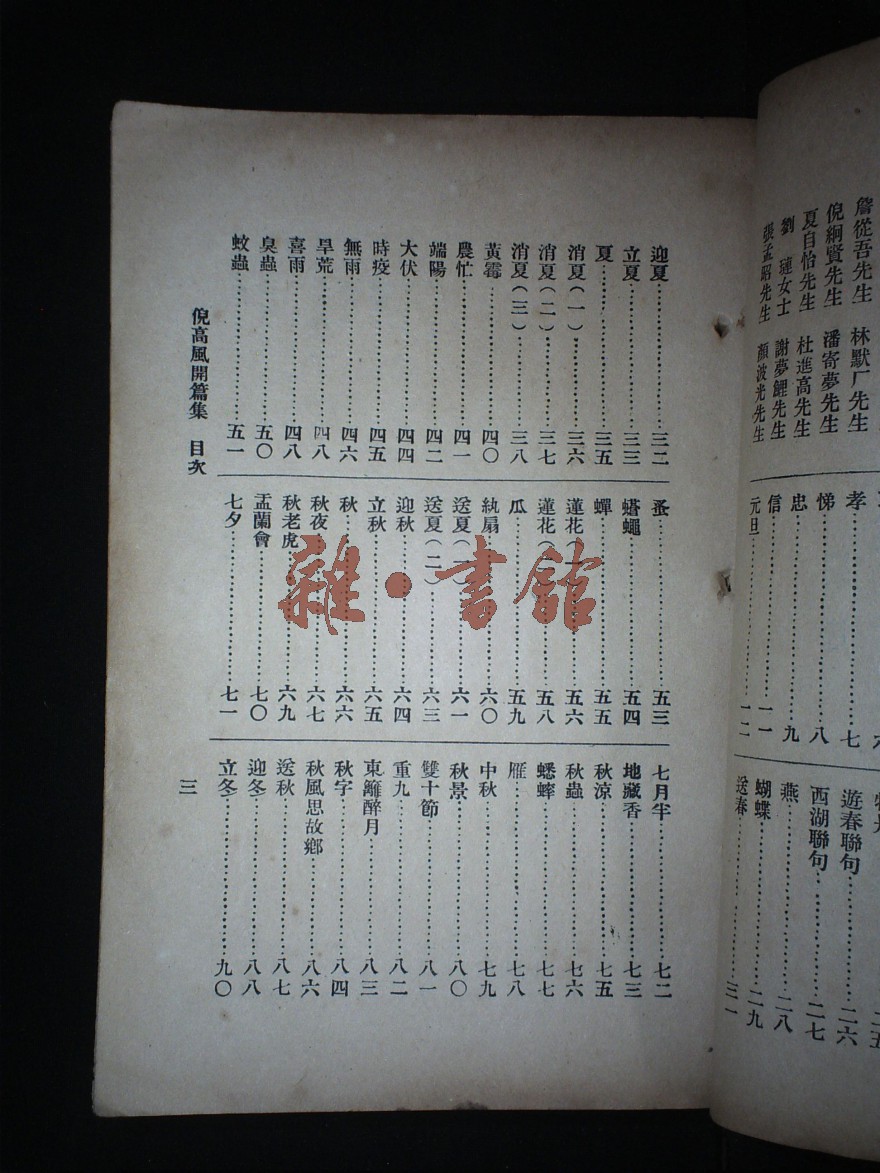 詹從吾先生 林默厂先生
倪綱賢先生 潘寄夢先生
夏自怡先生 杜進高先生
劉璉女士 謝夢鯉先生
張孟昭先生 顏波光先生
孝………七
悌………八
忠………九
信………一一
元旦………一二
遊春聯句………二六
西湖聯句………二七
燕………二八
蝴蝶………二九
送春………三一
迎夏………三二
立夏………三三
夏………三五
消夏(一)………三六
消夏(二)………三七
消夏(三)………三八
黃霉………四〇
農忙………四一
端陽………四二
大伏………四四
時疫………四五
無雨………四六
旱荒………四八
喜雨………四八
臭蟲………五〇
蚊蟲………五一
蚤………五三
蟮蠅………五四
蟬………五五
蓮花(一)………五六
蓮花(二)………五八
瓜………五九
紈扇………六〇
送夏(一)………六一
送夏(二)………六三
迎秋………六四
立秋………六五
秋………六六
秋夜………六七
秋老虎………六九
盂蘭會………七〇
七夕………七一
七月半………七二
地藏香………七三
秋涼………七五
秋蟲………七六
蟋蟀………七七
雁………七八
中秋………七九
秋景………八〇
雙十節………八一
重九………八二
東籬醉月………八三
秋字………八四
秋風思故鄉………八六
送秋………八七
迎冬………八八
立冬………九〇
倪高風開篇集 目次
三
雜·書館